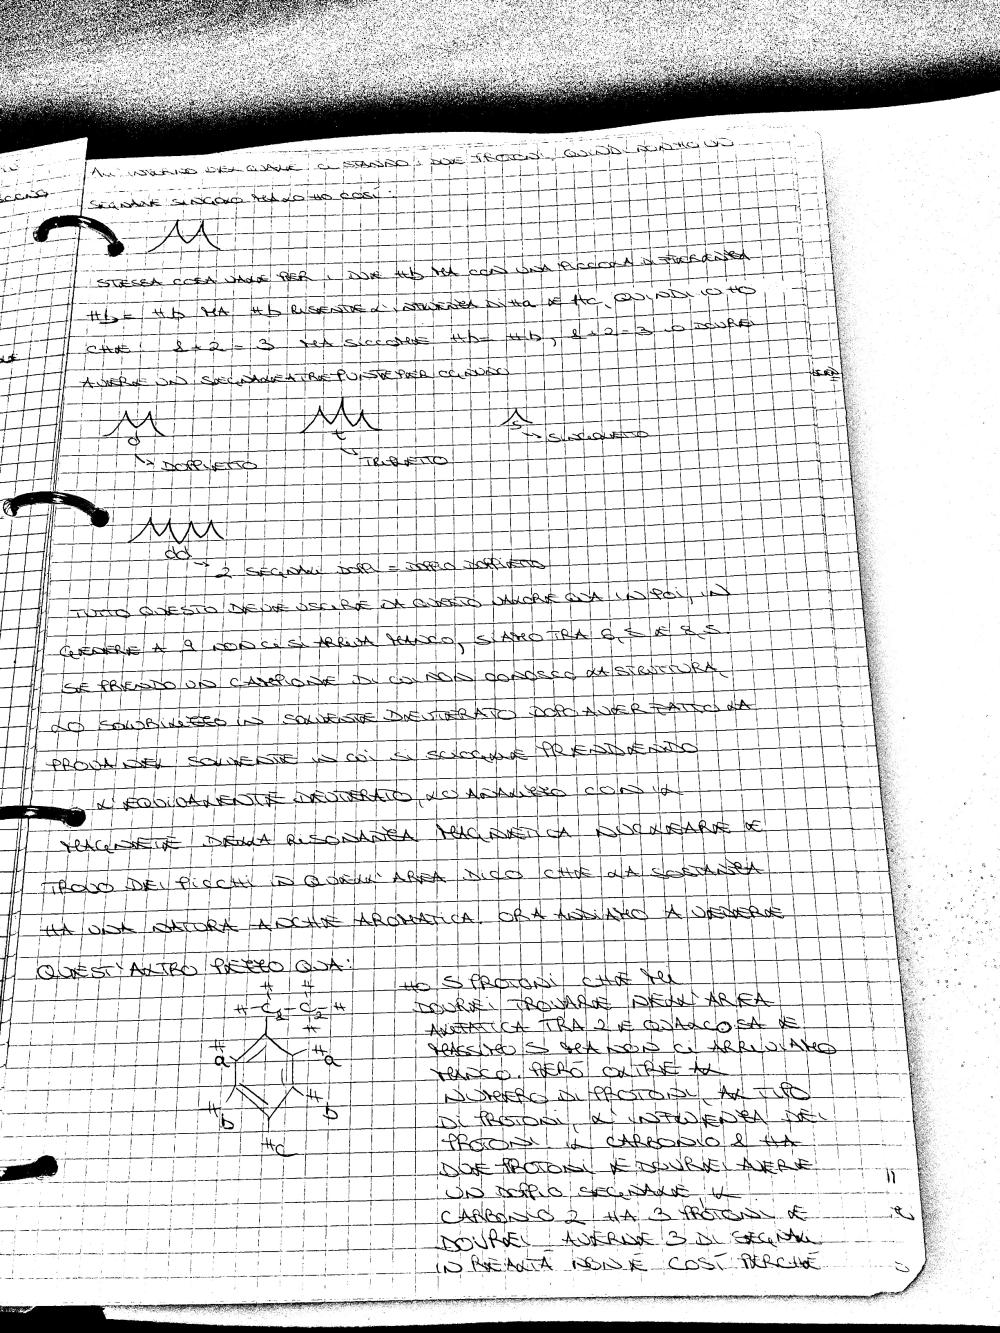 ALL' INTERNO DEL QUALE CI STANNO I DUE PROTONI, QUINDI NON HO UN
SEGNALE SINGOLO MA LO HO COSÌ:
STESSA COSA VALE PER I DUE Hb MA CON UNA PICCOLA DIFFERENZA
Hb = Hb MA Hb RISENTE L'INFLUENZA DI Ha E Hc, QUINDI IO HO
CHE: 1+2=3 MA SICCOME Hb = Hb, 1+2=3 IO DOVREI
AVERE UN SEGNALE A TRE PUNTE PER OGNUNO
d t s
→ DOPPIETTO → TRIPLETTO → SINGOLETTO
dd
→ 2 SEGNALI DOPPI = DOPPIO DOPPIETTO
TUTTO QUESTO DEVE USCIRE DA QUESTO VALORE QUA IN POI, IN
GENERE A 9 NON CI SI ARRIVA MANCO, SIAMO TRA 6,5 E 8,5.
SE PRENDO UN CAMPIONE DI CUI NON CONOSCO LA STRUTTURA,
LO SOLUBILIZZO IN SOLVENTE DEUTERATO DOPO AVER FATTO LA
PROVA DEL SOLVENTE IN CUI SI SCIOGLIE PRENDENDO
L'EQUIVALENTE DEUTERATO, LO ANALIZZO CON IL
MAGNETE DELLA RISONANZA MAGNETICA NUCLEARE E
TROVO DEI PICCHI IN QUELL'AREA DICO CHE LA SOSTANZA
HA UNA NATURA ANCHE AROMATICA. ORA ANDIAMO A VEDERE
QUEST'ALTRO PEZZO QUA:
H H
H-C1-C2-H
H
H a H a
H b H b
Hc
HO 5 PROTONI CHE MI
DOVREI TROVARE NELL'AREA
ALIFATICA TRA 2 E QUALCOSA E
MASSIMO 5 MA NON CI ARRIVIAMO
MANCO. PERÒ OLTRE AL
NUMERO DI PROTONI, AL TIPO
DI PROTONI, L'INFLUENZA DEI
PROTONI IL CARBONIO 1 HA
DUE PROTONI E DOVREI AVERE
UN DOPPIO SEGNALE, IL
CARBONIO 2 HA 3 PROTONI E
DOVREI AVERNE 3 DI SEGNALI
IN REALTÀ NON È COSÌ PERCHÉ